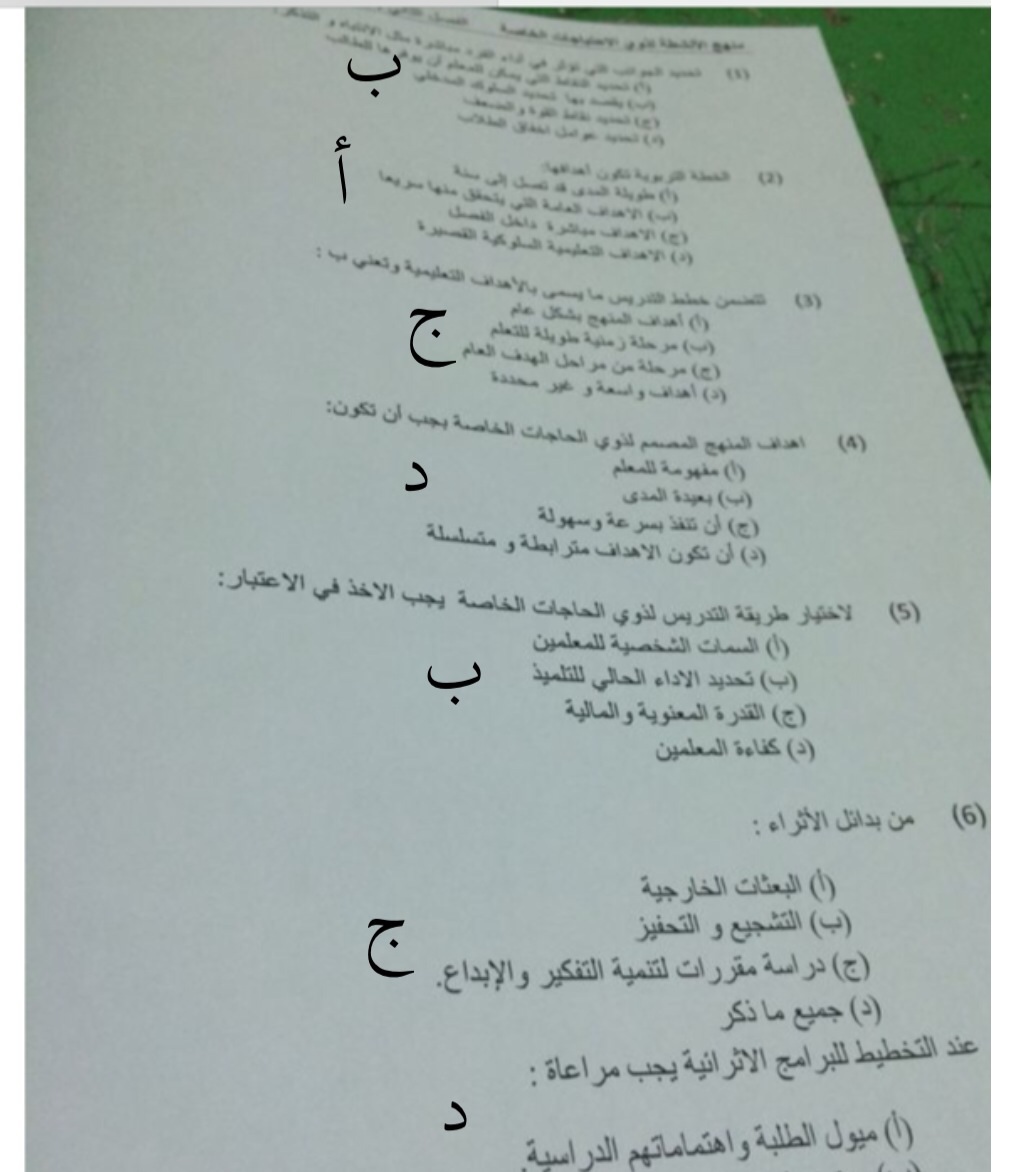 منهج الأنشطة لذوي الاحتياجات الخاصة الفصل الثاني
(1) تحديد الجوانب التي تؤثر في أداء الفرد مباشرة مثل الانتباه و التذكر:
(أ) تحديد النقاط التي يمكن للمعلم أن يوفرها للطالب
ب
(ب) يقصد بها تحديد السلوك المدخلي
(ج) تحديد نقاط القوة والضعف
(د) تحديد عوامل اخفاق الطلاب
(2) الخطة التربوية تكون أهدافها:
أ
(أ) طويلة المدى قد تصل إلى سنة
(ب) الاهداف العامة التي يتحقق منها سريعا
(ج) الاهداف مباشرة داخل الفصل
(د) الاهداف التعليمية السلوكية القصيرة
(3) تتضمن خطط التدريس ما يسمى بالأهداف التعليمية وتعني ب :
(أ) أهداف المنهج بشكل عام
(ب) مرحلة زمنية طويلة للتعلم
ج
(ج) مرحلة من مراحل الهدف العام
(د) أهداف واسعة و غير محددة
(4) اهداف المنهج المصمم لذوي الحاجات الخاصة يجب أن تكون:
(أ) مفهومة للمعلم
د
(ب) بعيدة المدى
(ج) أن تنفذ بسرعة وسهولة
(د) أن تكون الاهداف مترابطة و متسلسلة
(5) لاختيار طريقة التدريس لذوي الحاجات الخاصة يجب الاخذ في الاعتبار:
(أ) السمات الشخصية للمعلمين
ب
(ب) تحديد الاداء الحالي للتلميذ
(ج) القدرة المعنوية والمالية
(د) كفاءة المعلمين
(6) من بدائل الأثراء :
(أ) البعثات الخارجية
(ب) التشجيع و التحفيز
ج
(ج) دراسة مقررات لتنمية التفكير والإبداع.
(د) جميع ما ذكر
عند التخطيط للبرامج الاثرائية يجب مراعاة :
د
(أ) ميول الطلبة واهتماماتهم الدراسية.